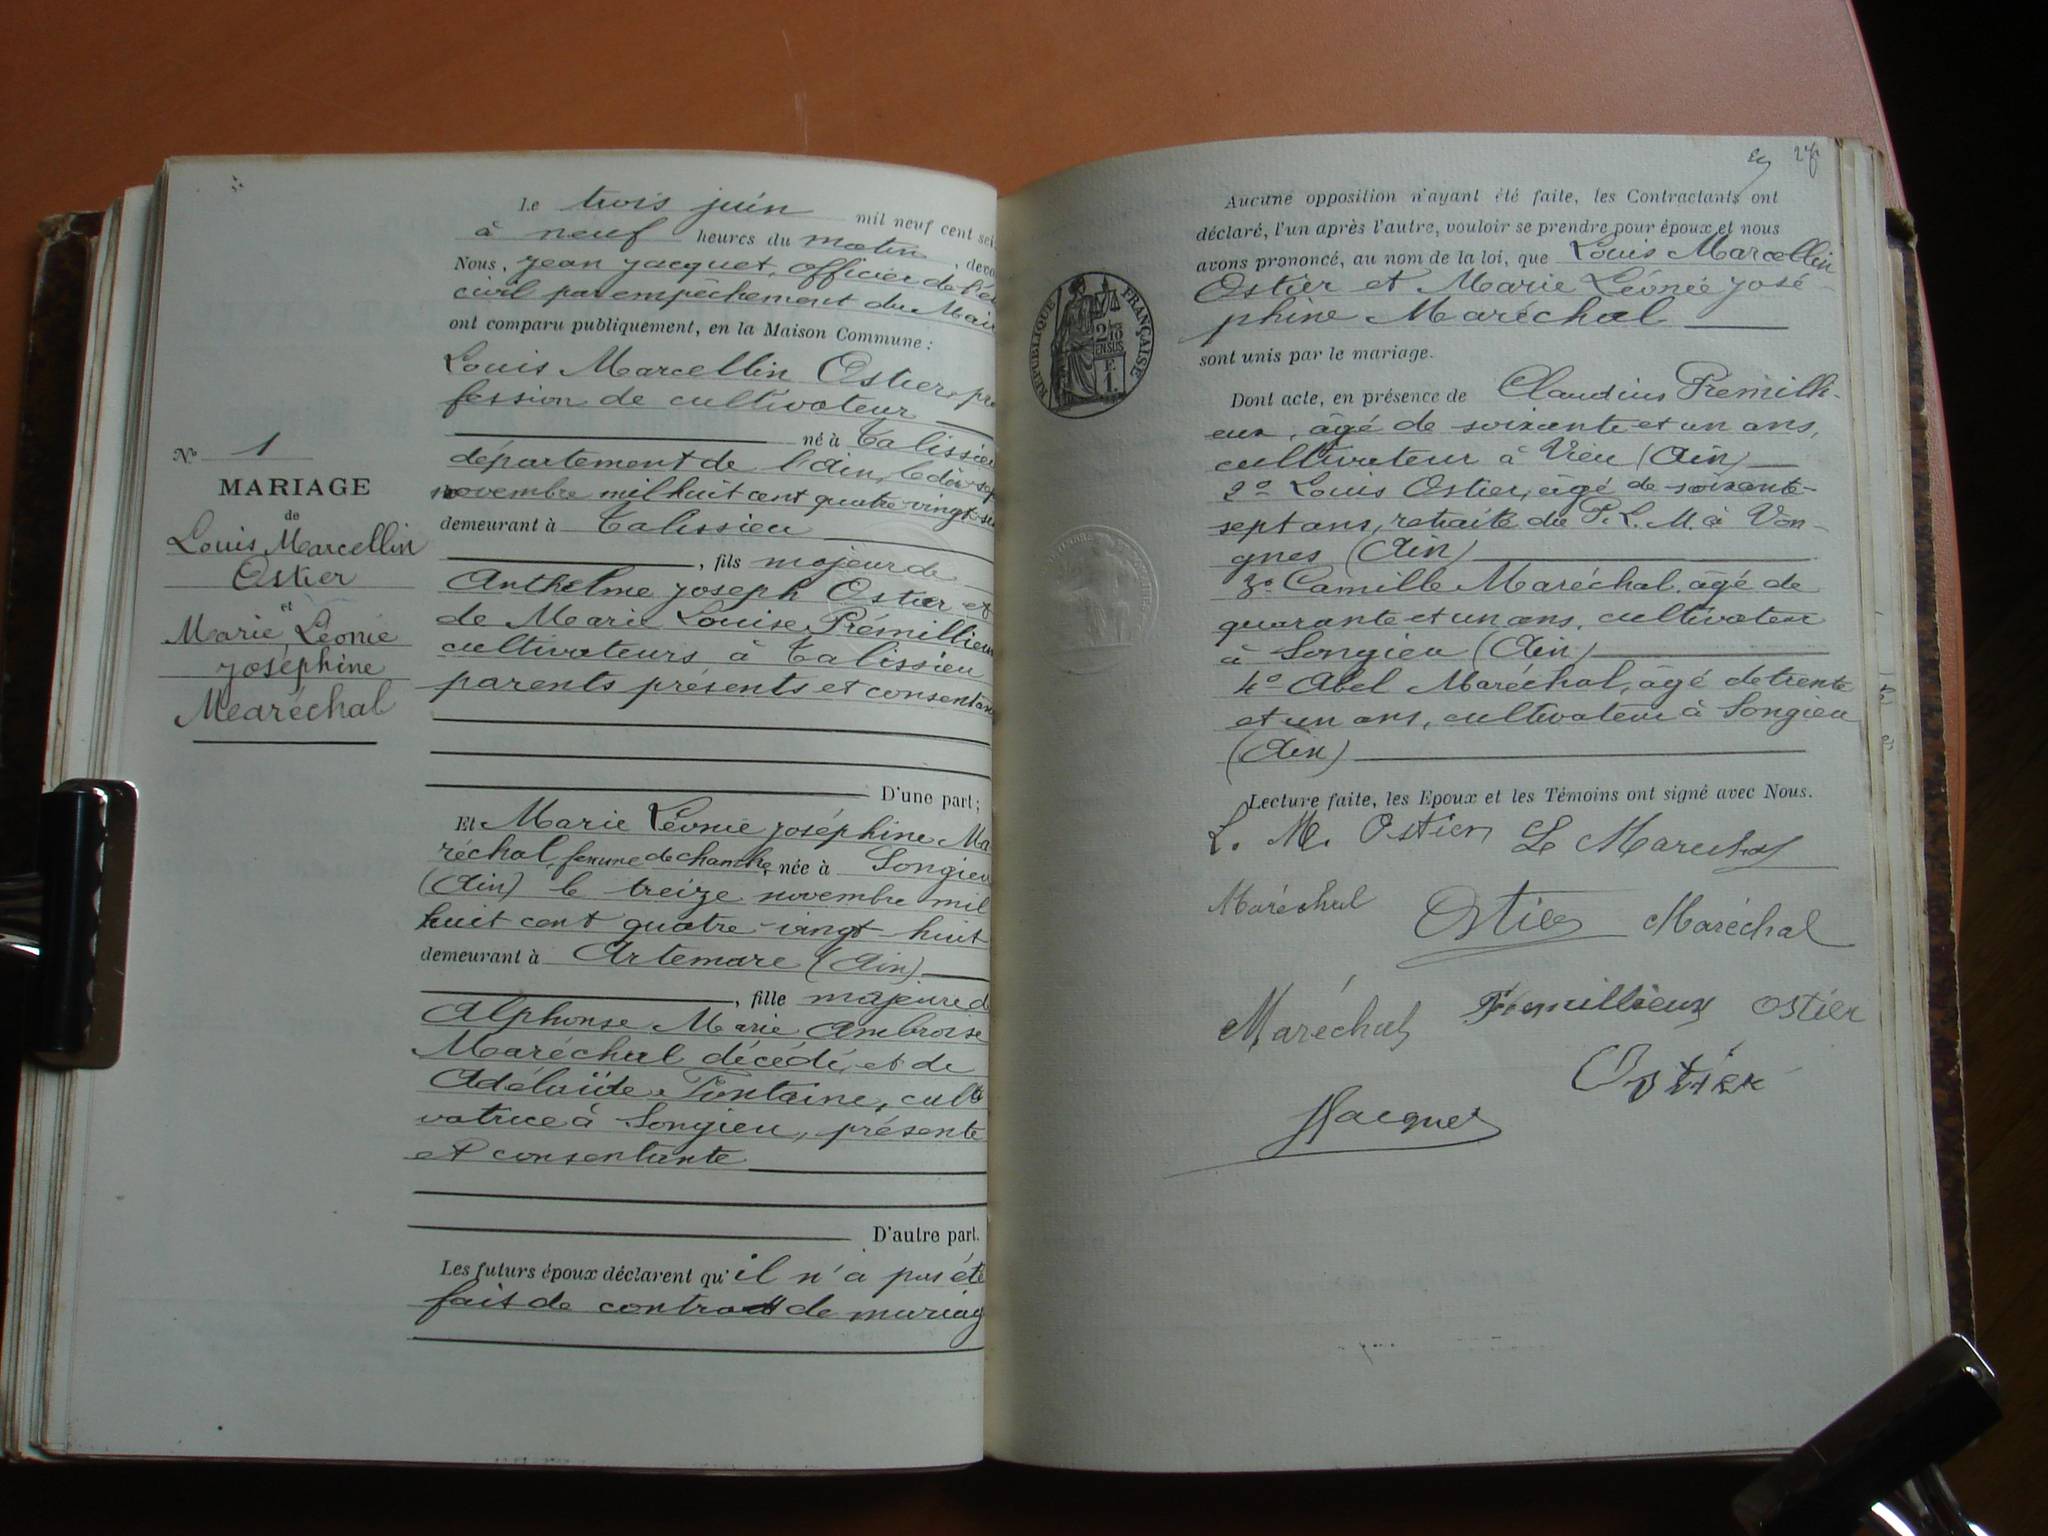 Le trois juin mil neuf cent sei
à neuf heures du matin, deva
Nous, jean jacquet, officier de l'é
civil par empêchement du Mair
ont comparu publiquement, en la Maison Commune :
Louis Marcellin Ostier, pro
fession de cultivateur
né à Talissieu
département de l'Ain, le dix sep
novembre mil huit cent quatre-vingt-
demeurant à Talissieu
, fils majeur de
Anthelme joseph Ostier et
de Marie Louise Prémillieu
cultivateurs à Talissieu
parents présents et consentan
D'une part ;
Nº 1
MARIAGE
de
Louis Marcellin
Ostier
et
Marie Léonie
joséphine
Maréchal
Et Marie Léonie joséphine Ma
réchal, femme de chambre, née à Songieu
(Ain) le treize novembre mil
huit cent quatre-vingt huit
demeurant à Artemare (Ain)
, fille majeure d
Alphonse Marie Ambroise
Maréchal décédé, et de
Adélaïde Fontaine, culti
vatrice à Songieu, présente
et consentante
D'autre part.
Les futurs époux déclarent qu'il n'a pas été
fait de contrat de mariag
27
Aucune opposition n'ayant été faite, les Contractants ont
déclaré, l'un après l'autre, vouloir se prendre pour époux et nous
avons prononcé, au nom de la loi, que Louis Marcellin
Ostier et Marie Léonie José-
phine Maréchal
sont unis par le mariage.
RÉPUBLIQUE FRANÇAISE
2/10
EN SUS
F.
1.
Dont acte, en présence de Claudius Premilli-
eux, âgé de soixante et un ans,
cultivateur à Vieu (Ain)
2º Louis Ostier, âgé de soixante-
sept ans, retraité du P. L. M. à Von-
gnes (Ain)
3º Camille Maréchal, âgé de
quarante et un ans, cultivateur
à Songieu (Ain)
4º Abel Maréchal, âgé de trente
et un ans, cultivateur à Songieu
(Ain)
Lecture faite, les Epoux et les Témoins ont signé avec Nous.
L. M. Ostier L Marechal
Maréchal Ostier Maréchal
Maréchal Premillieux Ostier
Ostier
J Jacquet